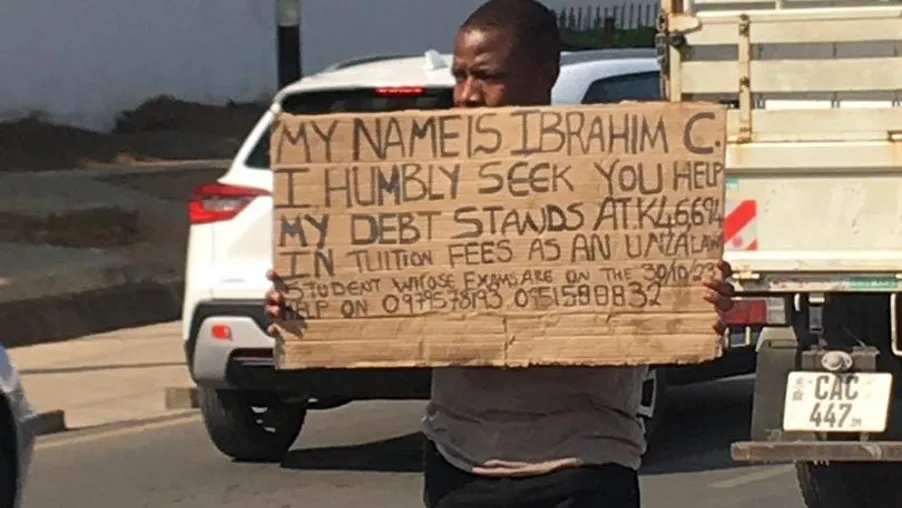 MY NAME IS IBRAHIM C.
I HUMBLY SEEK YOU HELP
MY DEBT STANDS AT K46,694
IN TUITION FEES AS AN UNZA LAW
STUDENT WHOSE EXAMS ARE ON THE 30/10/23
HELP ON 0979578193 0951598832
CAC
447